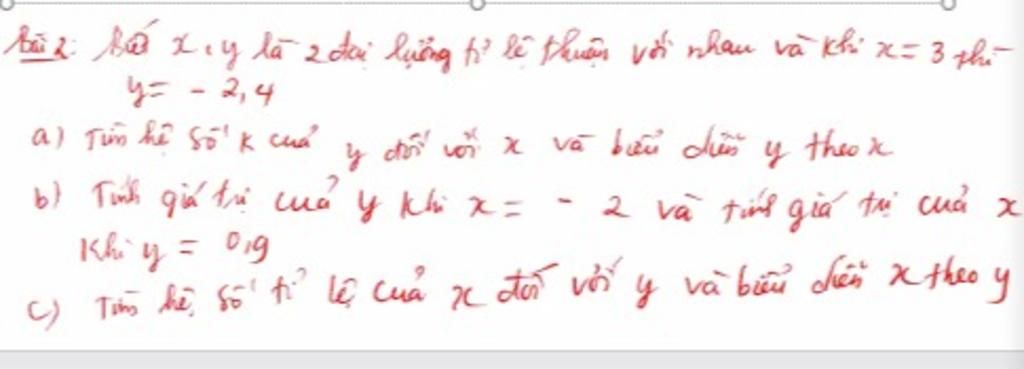 Bài 2: Biết x, y là 2 đại lượng tỉ lệ thuận với nhau và khi x = 3 thì
y = - 2,4
a) Tìm hệ số k của y đối với x và biểu diễn y theo x
b) Tính giá trị của y khi x = - 2 và tính giá trị của x
khi y = 0,9
c) Tìm hệ số tỉ lệ của x đối với y và biểu diễn x theo y